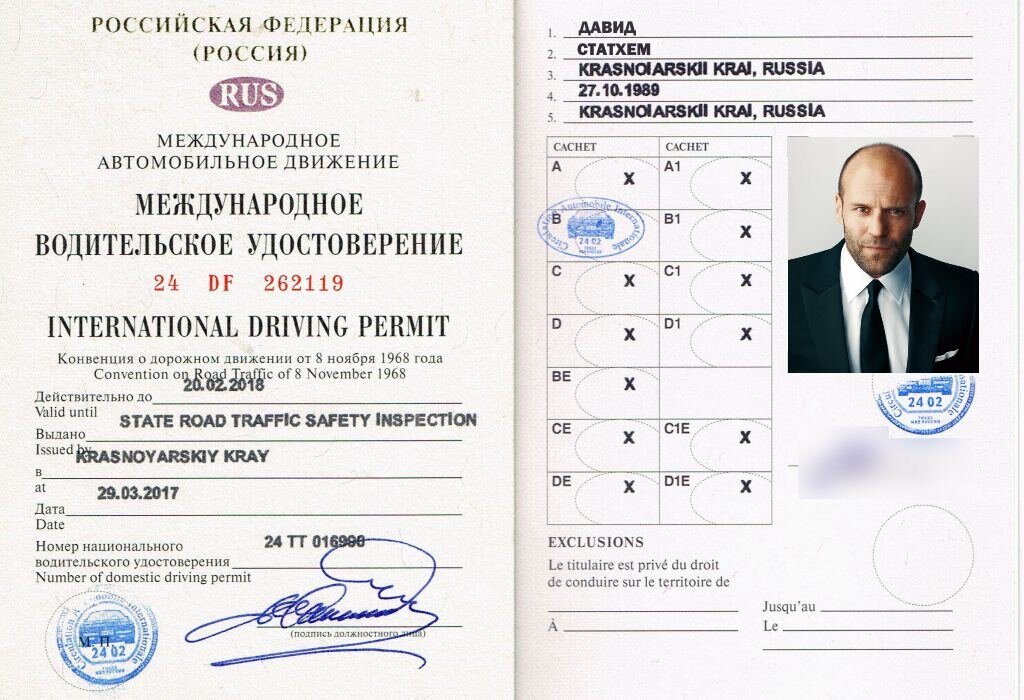 РОССИЙСКАЯ ФЕДЕРАЦИЯ
(РОССИЯ)
RUS
МЕЖДУНАРОДНОЕ
АВТОМОБИЛЬНОЕ ДВИЖЕНИЕ
МЕЖДУНАРОДНОЕ
ВОДИТЕЛЬСКОЕ УДОСТОВЕРЕНИЕ
24 DF 262119
INTERNATIONAL DRIVING PERMIT
Конвенция о дорожном движении от 8 ноября 1968 года
Convention on Road Traffic of 8 November 1968
20.02.2018
Действительно до
Valid until
STATE ROAD TRAFFIC SAFETY INSPECTION
Выдано
Issued by
KRASNOYARSKIY KRAY
в
at
29.03.2017
Дата
Date
Номер национального
24 ТТ 016998
водительского удостоверения
Number of domestic driving permit
(подпись должностного лица)
М П
Circulation Automobile Internationale
24 02
1. ДАВИД
2. СТАТХЕМ
3. KRASNOIARSKII KRAI, RUSSIA
4. 27.10.1989
5. KRASNOIARSKII KRAI, RUSSIA
CACHET CACHET
A X A1 X
B B1 X
Circulation Automobile Internationale
24 02
C X C1 X
D X D1 X
BE X
CE X C1E X
DE X D1E X
24 02
EXCLUSIONS
Le titulaire est privé du droit
de conduire sur le territoire de
Jusqu'au
À Le